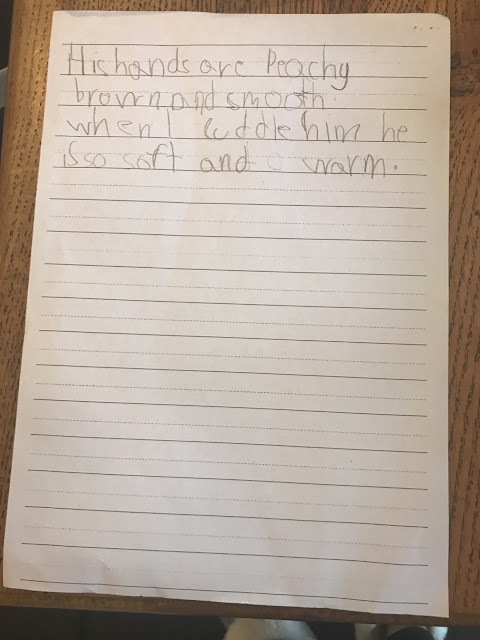 His hands are Peachy
brown and smooth
when I cuddle him he
is so soft and warm.